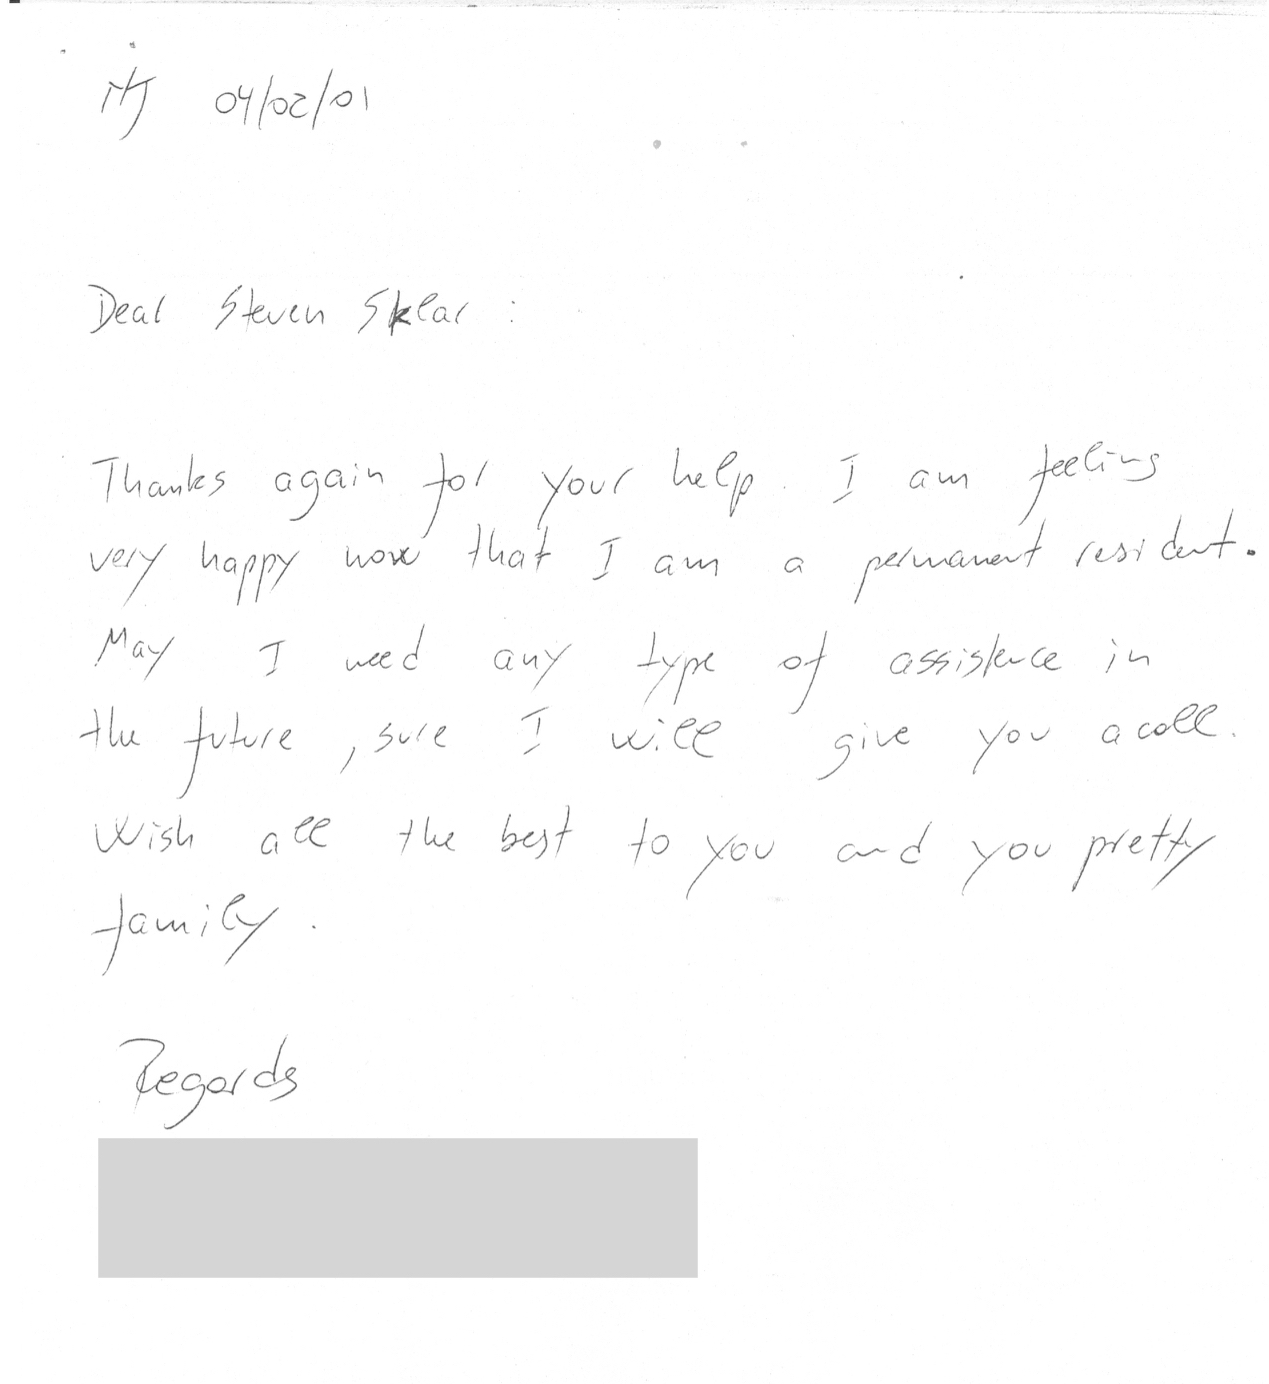 NJ 04/02/01
Dear Steven Sklar :
Thanks again for your help. I am feeling
very happy now that I am a permanent resident.
May I need any type of assistence in
the future, sure I will give you a call.
Wish all the best to you and you pretty
family.
Regards